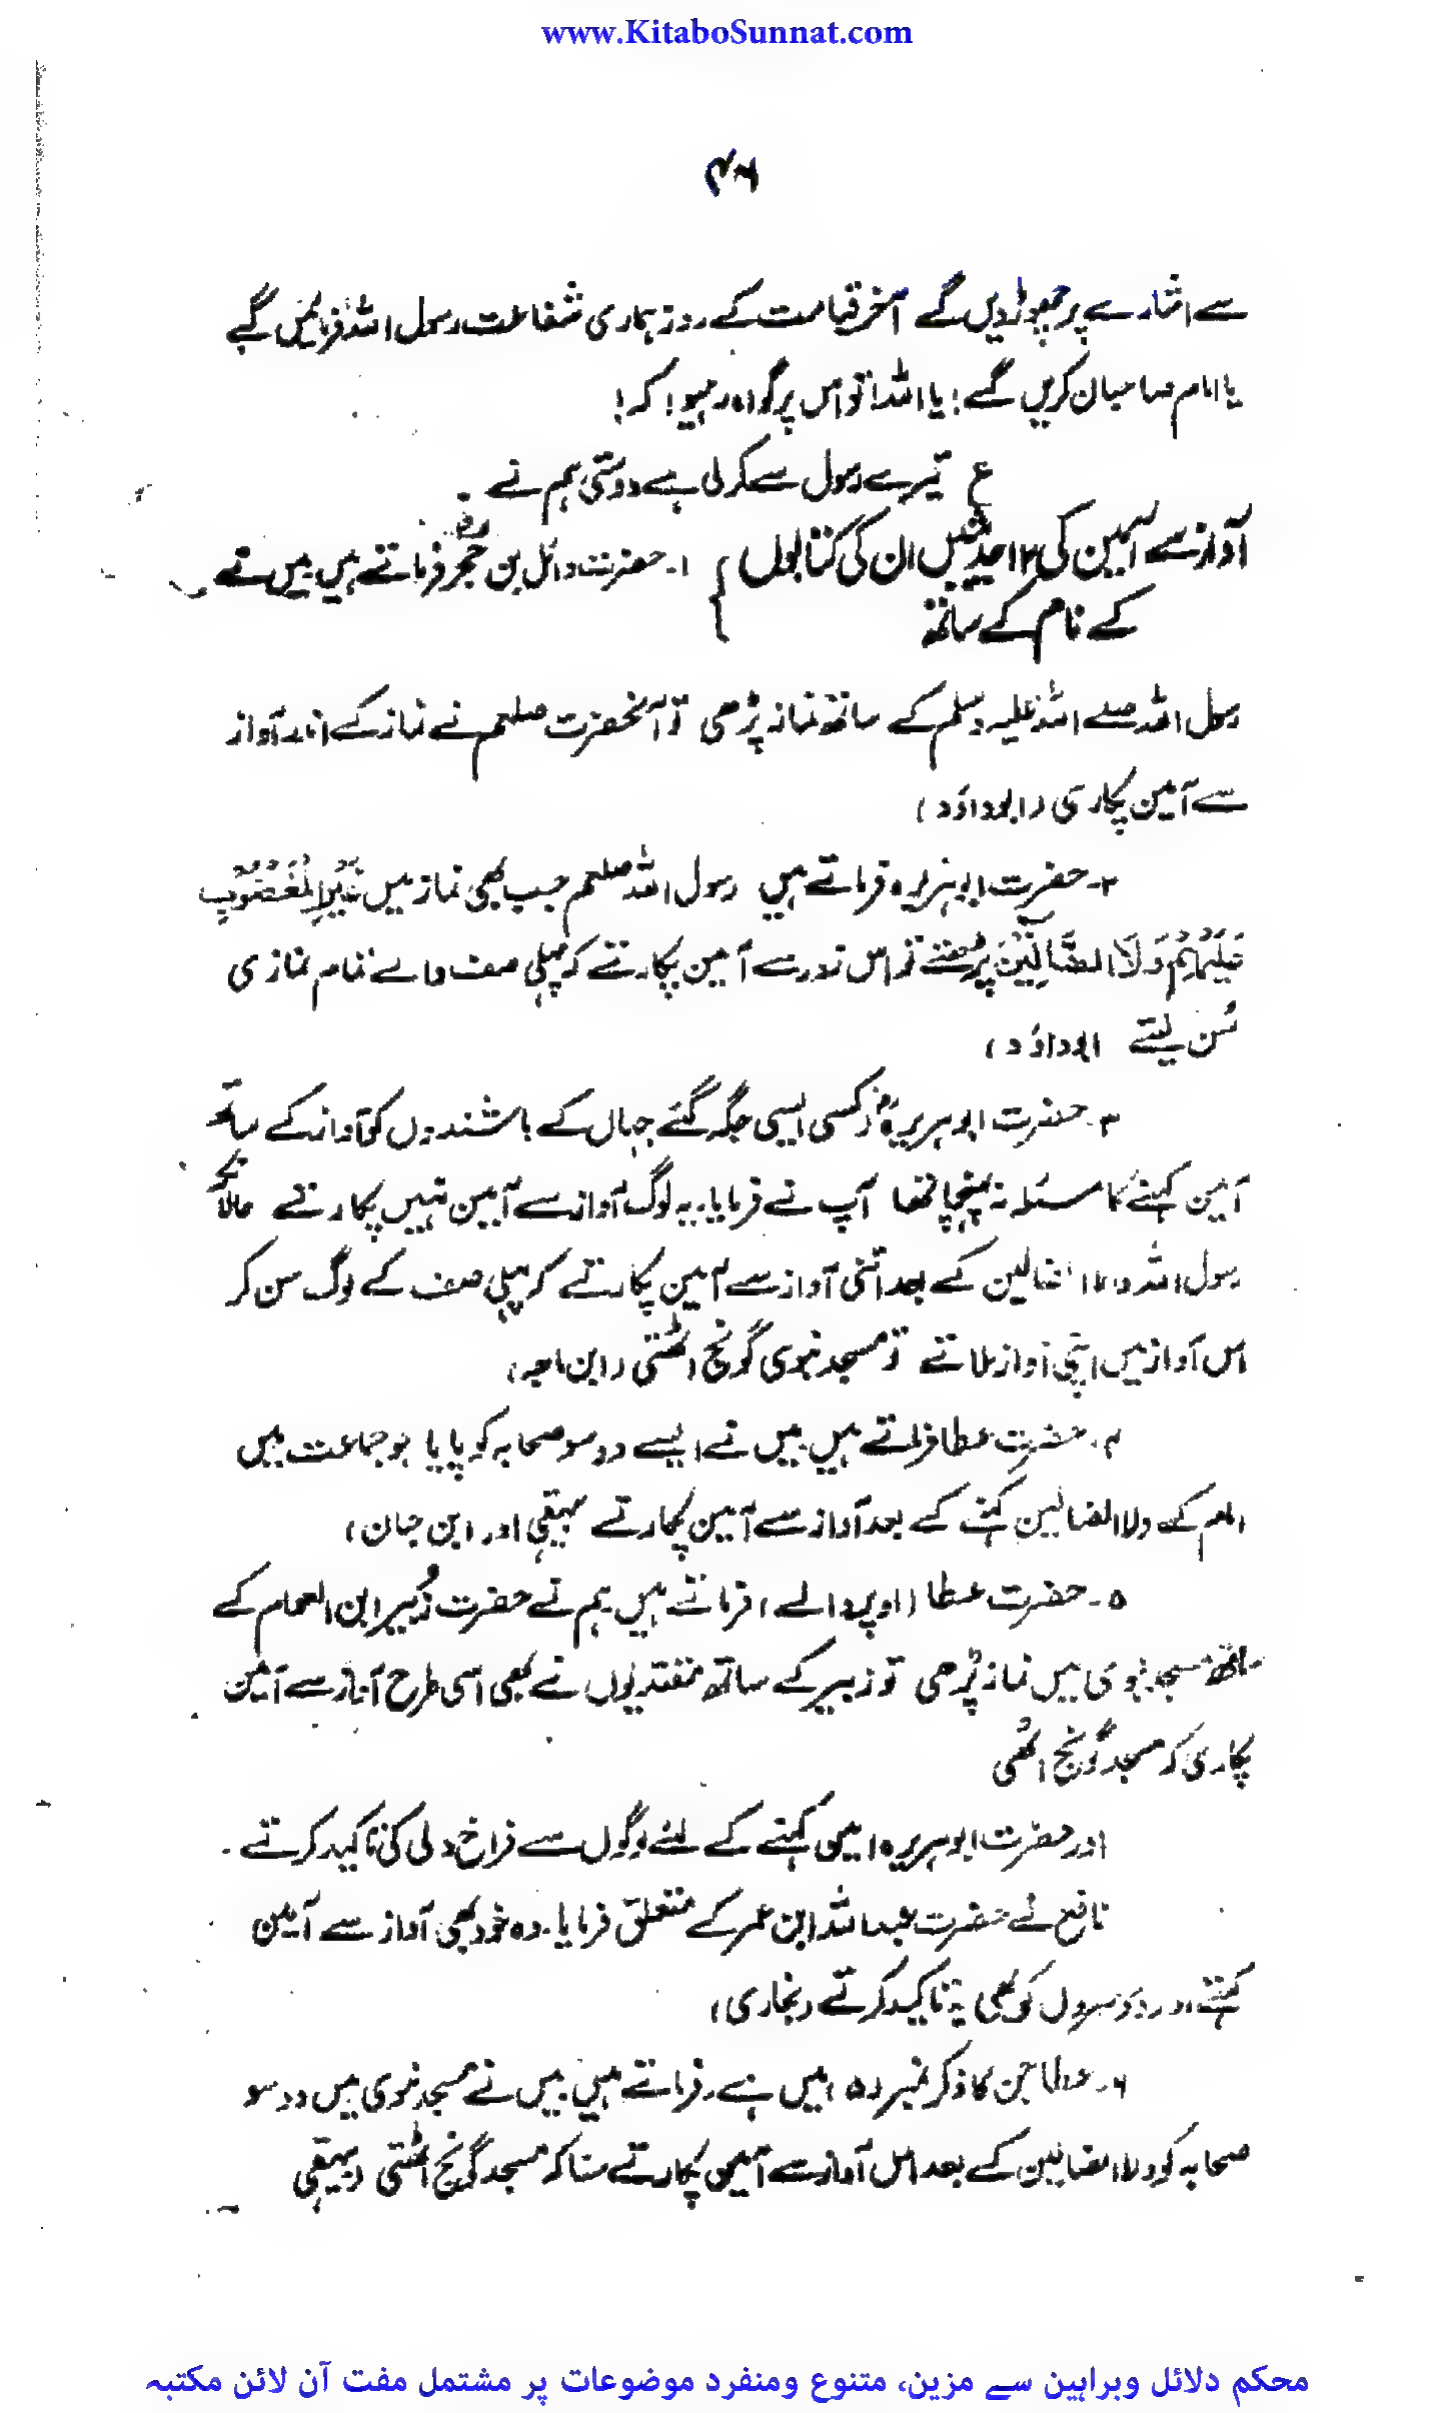 www.KitaboSunnat.com
۴۶
سے اشارے پر چھوڑ دیں گے آخر قیامت کے روز ہماری شفاعت رسول اللہ فرمائیں گے
یا امام صاحبان کریں گے! یا اللہ! تو اس پر گواہ رہیو! کہ!
ع تیرے رسول سے کر لی ہے دوستی ہم نے
آواز سے آمین کی ۱۲ حدیثیں ان کی کتابوں
کے نام کے ساتھ
۱۔ حضرت وائل بن حجرؓ فرماتے ہیں میں نے
رسول اللہ صلے اللہ علیہ وسلم کے ساتھ نماز پڑھی تو آنحضرت صلعم نے نماز کے اندر آواز
سے آمین پکاری (ابوداؤد)
۲۔ حضرت ابوہریرہ فرماتے ہیں رسول اللہ صلعم جب بھی نماز میں غَیْرِ الْمَغْضُوْبِ
عَلَیْہِمْ وَلَا الضَّالِّیْنَ پڑھتے تو اس زور سے آمین پکارتے کہ پہلی صف والے تمام نمازی
سُن لیتے ابوداؤد)
۳۔ حضرت ابوہریرہؓ کسی ایسی جگہ گئے جہاں کے باشندوں کو آواز کے ساتھ
آمین کہنے کا مسئلہ نہ پہنچا تھا آپ نے فرمایا۔ یہ لوگ آواز سے آمین نہیں پکارتے حالانکہ
رسول اللہ ولا الضالین کے بعد اتنی آواز سے آمین پکارتے کہ پہلی صف کے لوگ سن کر
اس آواز میں اپنی آواز ملاتے تو مسجد نبوی گونج اٹھتی (ابن ماجہ)
۴۔ حضرت عطا فرماتے ہیں میں نے ایسے دو سو صحابہ کو پایا جو جماعت میں
امام کے ولا الضالین کہنے کے بعد آواز سے آمین پکارتے بیہقی اور ابن حبان)
۵۔ حضرت عطا (اوپر والے) فرماتے ہیں ہم نے حضرت زُبیر ابن العمام کے
ساتھ مسجد نبوی میں نماز پڑھی تو زبیر کے ساتھ مقتدیوں نے بھی اسی طرح آواز سے آمین
پکاری کہ مسجد گونج اٹھی
اور حضرت ابوہریرہ امین کہنے کے لئے لوگوں سے فراخ دلی کی تاکید کرتے۔
نافع نے حضرت عبداللہ ابن عمر کے متعلق فرمایا۔ وہ خود بھی آواز سے آمین
کہتے اور دوسروں کو بھی یہ تاکید کرتے (بخاری)
۶۔ عطا جن کا ذکر نمبر (۵) میں ہے۔ فرماتے ہیں میں نے مسجد نبوی میں دو سو
صحابہ کو ولا الضالین کے بعد اس آواز سے آمین پکارتے سنا کہ مسجد گونج اٹھتی (بیہقی
محکم دلائل وبراہین سے مزین، متنوع ومنفرد موضوعات پر مشتمل مفت آن لائن مکتبہ